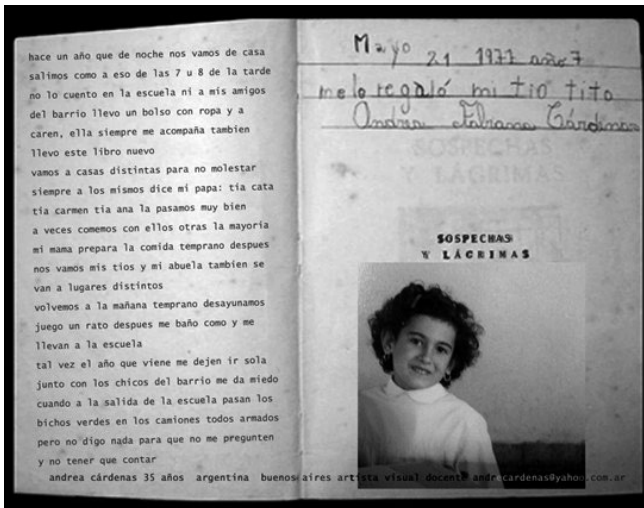 hace un año que de noche nos vamos de casa
salimos como a eso de las 7 u 8 de la tarde
no lo cuento en la escuela ni a mis amigos
del barrio llevo un bolso con ropa y a
caren, ella siempre me acompaña tambien
llevo este libro nuevo
vamos a casas distintas para no molestar
siempre a los mismos dice mi papa: tia cata
tia carmen tia ana la pasamos muy bien
a veces comemos con ellos otras la mayoria
mi mama prepara la comida temprano despues
nos vamos mis tios y mi abuela tambien se
van a lugares distintos
volvemos a la mañana temprano desayunamos
juego un rato despues me baño como y me
llevan a la escuela
tal vez el año que viene me dejen ir sola
junto con los chicos del barrio me da miedo
cuando a la salida de la escuela pasan los
bichos verdes en los camiones todos armados
pero no digo nada para que no me pregunten
y no tener que contar
Mayo 21 1977 año 7
me lo regaló mi tio tito
Andrea Fabiana Cárdenas
SOSPECHAS
Y LÁGRIMAS
SOSPECHAS
Y LÁGRIMAS
andrea cárdenas 35 años argentina buenos aires artista visual docente andrecardenas@yahoo.com.ar